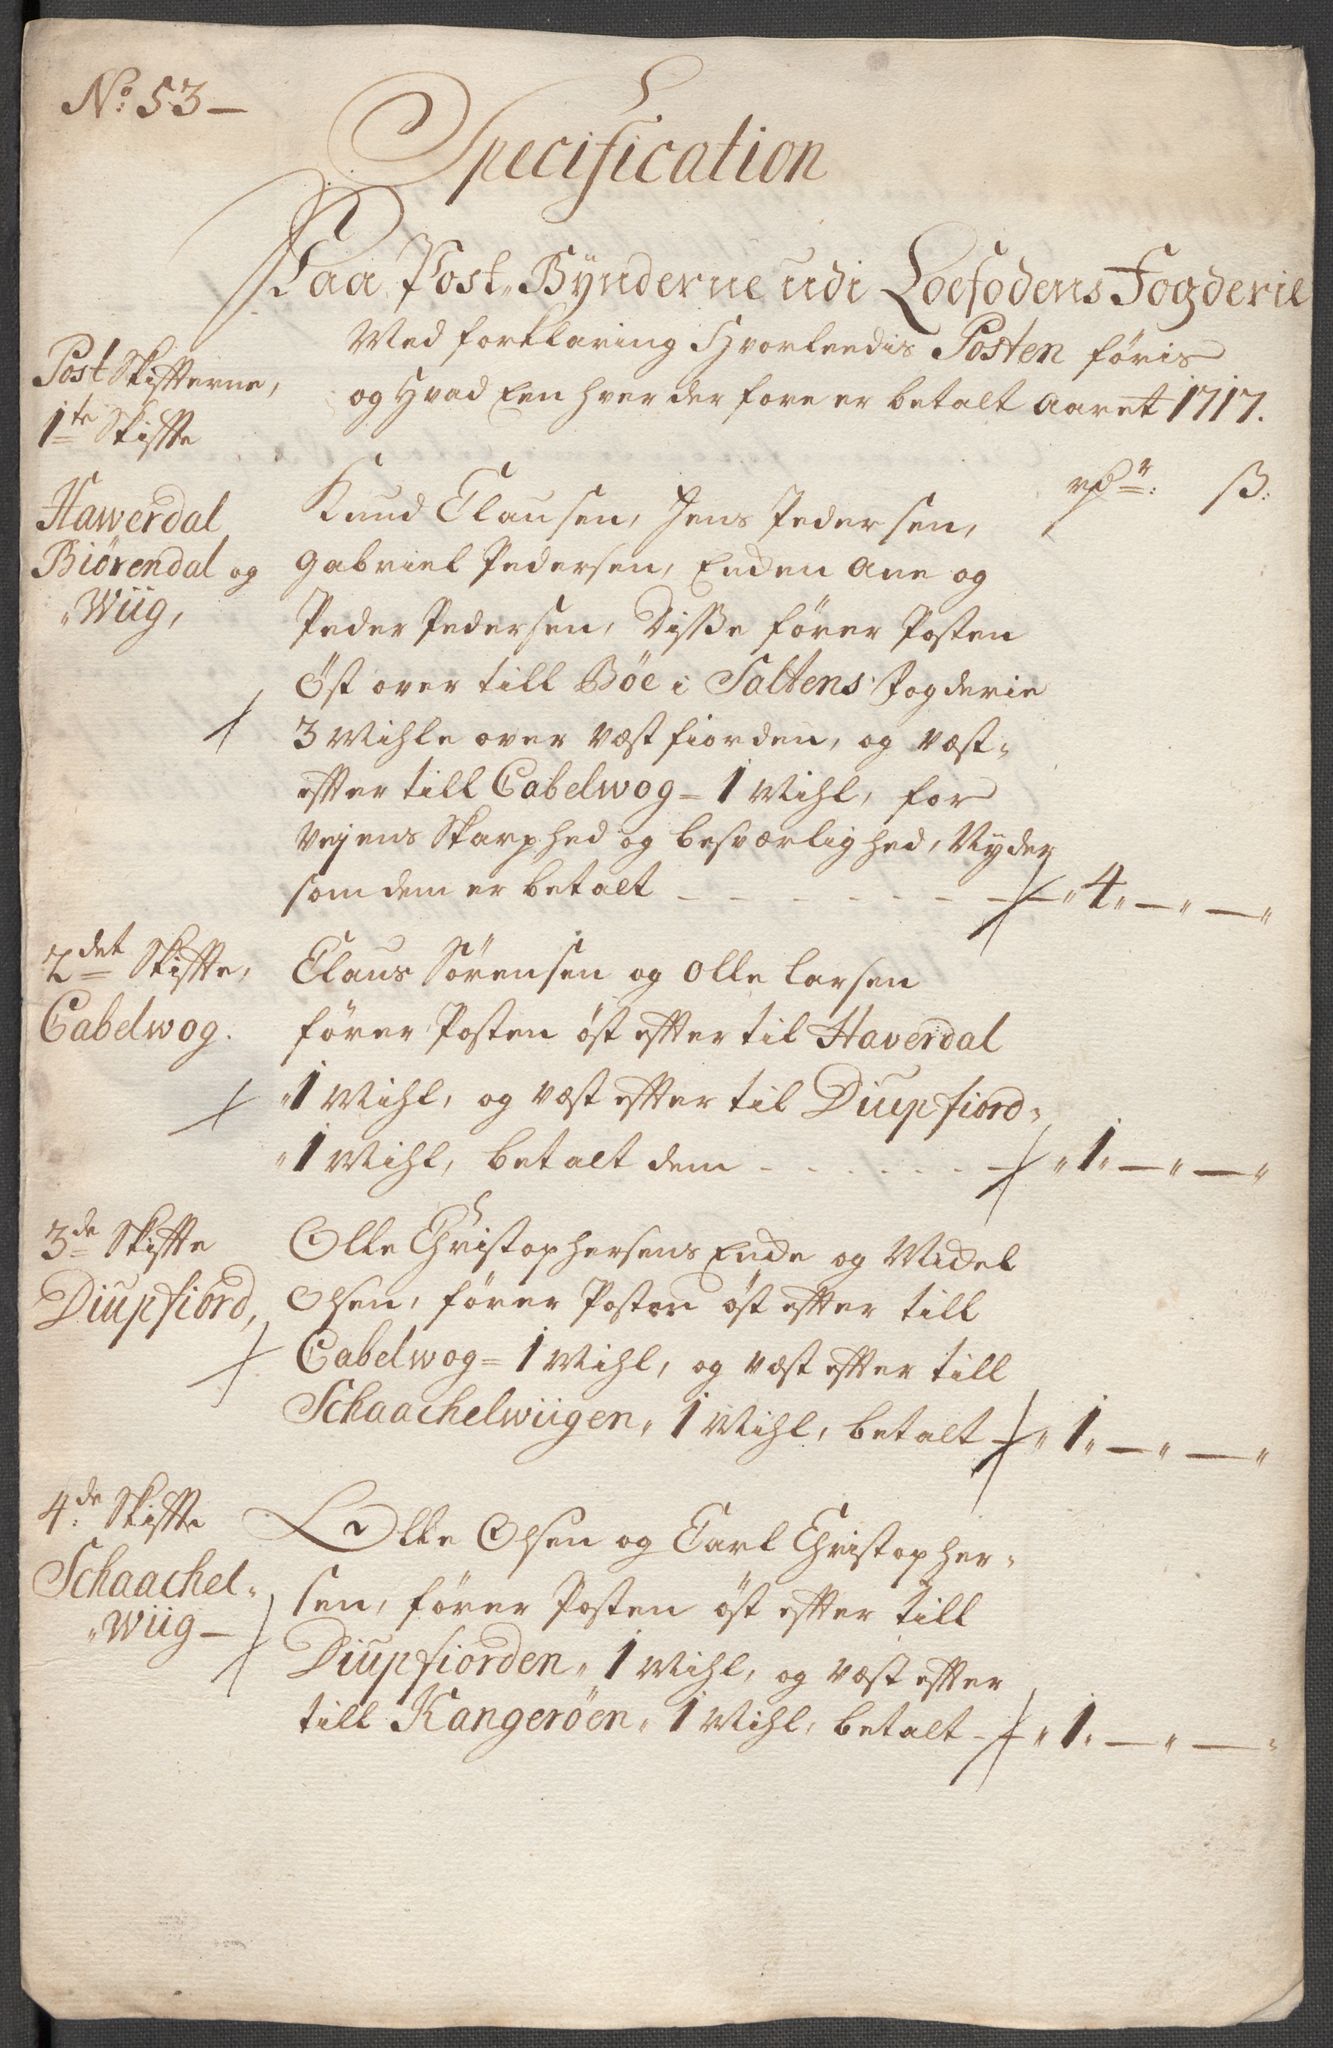 No: 53 –
Specification
Paa Post-Bynderne udi Loefodens Fogderie
Med forklaring Hvorleedis Posten føris
og Hvad Een hver der fore er betalt Aaret 1717.
Post Skifterne,
1te Skiffte
rdr: ß:
Hawerdal
Biörendal og
"Wiig,
Knud Clausen, Jens Pedersen,
Gabriel Pedersen, Enden Ane og
Peder Pedersen, Disse fører Posten
Öst over till Böe i Saltens Fogderie
3 Mihle over væstfiorden, og væst-
effter till Cabelwog = 1 Mihl, for
Vejens Skarphed og besværlighed, Nyder
som dem er betalt - - - - - - - - "4"—"—"
2det Skiffte,
Cabelwog.
Claus Sörensen og Olle Larsen
fører Posten öst effter til Haverdal
"1 Mihl, og væst effter til Diupfiord-
"1 Mihl, betalt dem - - - - - - - "1"—"—"
3de Skiffte
Diupfiord,
Olle Christophersens Ende og Midel
Olsen, fører Posten öst effter till
Cabelwog = 1 Mihl, og væst effter till
Schaachelwiigen" 1 Mihl, betalt - "1"—"—"
4de Skiffte
Schaachel-
"Wiig –
Olle Olsen og Carl Christopher-
sen, fører Posten öst effter till
Diupfiorden" 1 Mihl, og væst effter
till Kangeröen" 1 Mihl, betalt - "1"—"—"